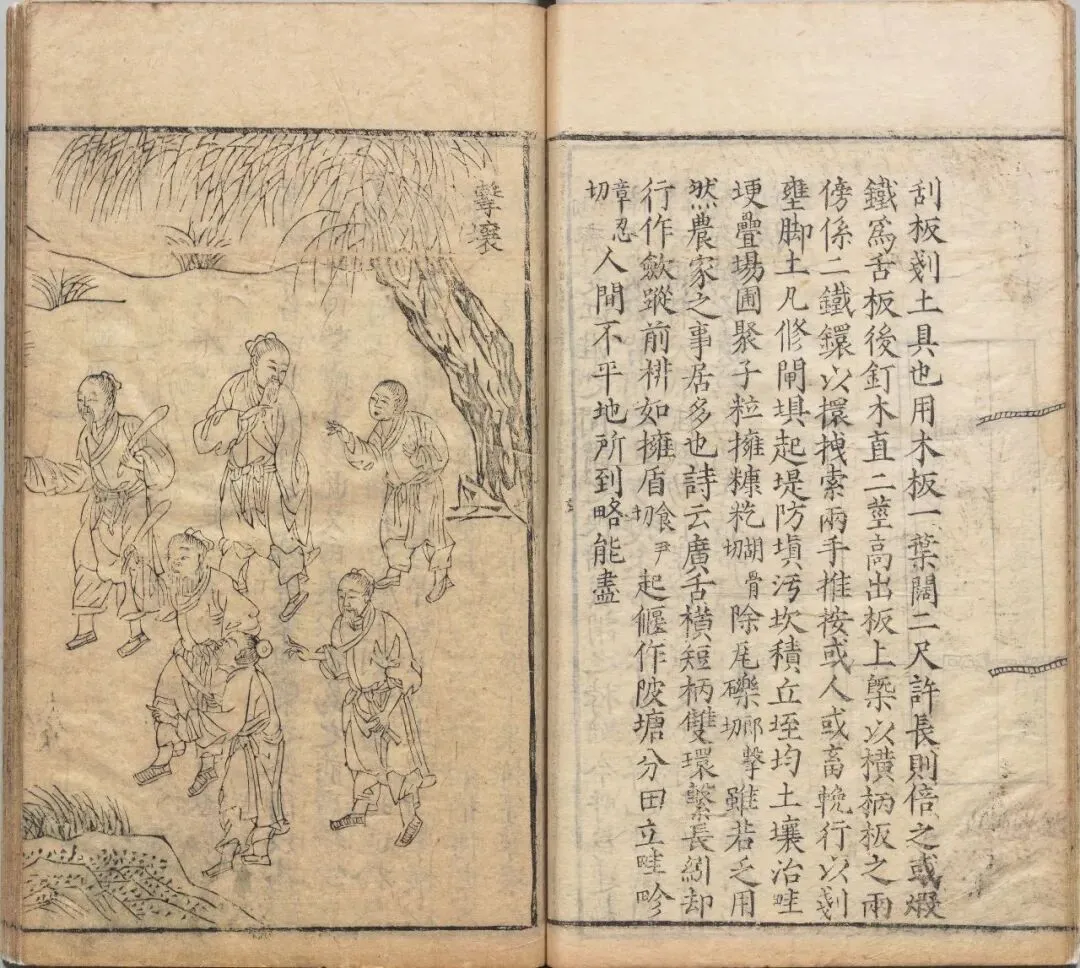 刮板剗土具也用木板一葉闊二尺許長則倍之或煅
鐵爲舌板後釘木直二莖高出板上槩以橫柄板之兩
傍係二鐵鐶以擐拽索兩手推按或人或畜輓行以剗
壅脚土凡修閘垻起堤防塡汚坎積丘垤均土壤治畦
埂疊場圃聚子粒擁糠籺胡骨切除瓦礫郎擊切雖若乏用
然農家之事居多也詩云廣舌橫短柄雙環繫長紖却
行作歛蹤前排如擁盾食尹切起偃作陂塘分田立畦畛
章忍切人間不平地所到略能盡
擊壤